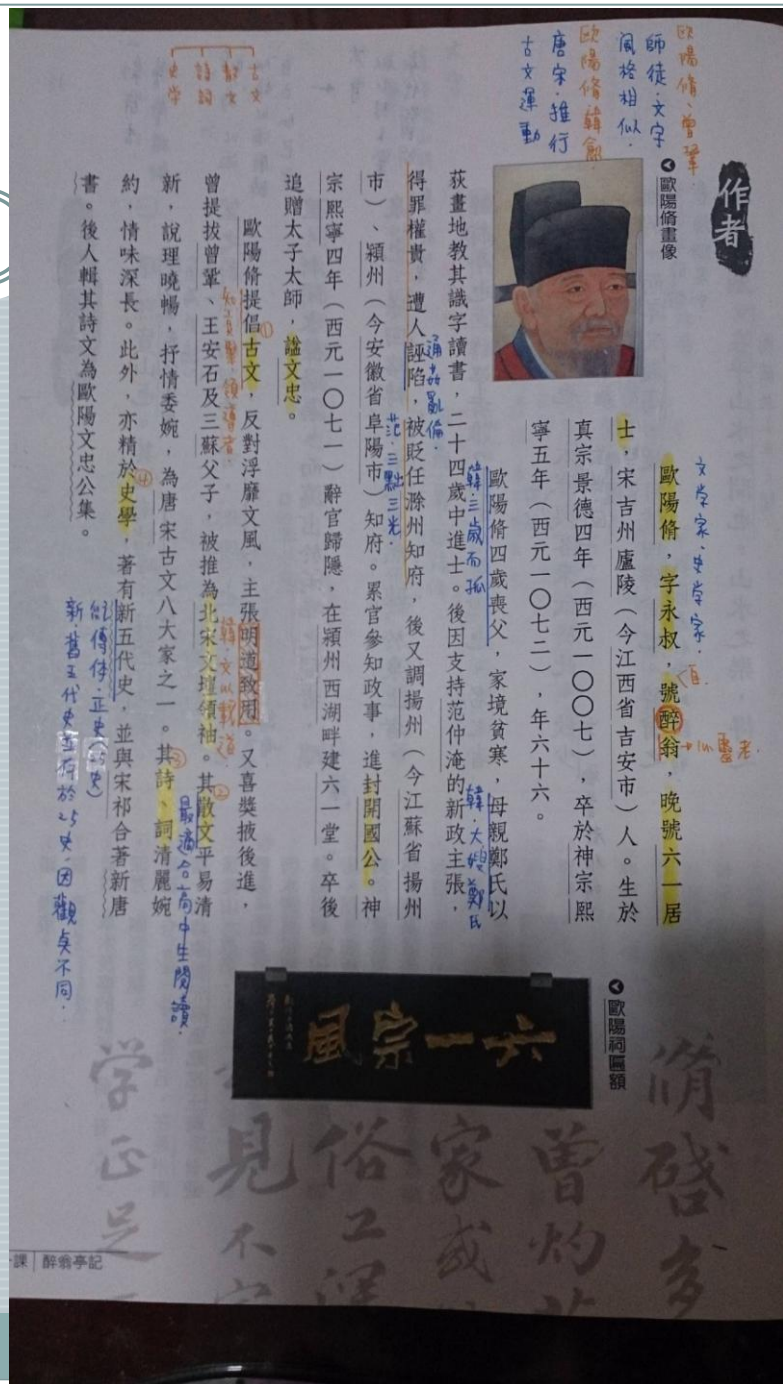 作者
歐陽脩畫像
歐陽脩，字永叔，號醉翁，晚號六一居
士，宋吉州廬陵（今江西省吉安市）人。生於
真宗景德四年（西元一〇〇七），卒於神宗熙
寧五年（西元一〇七二），年六十六。
歐陽脩四歲喪父，家境貧寒，母親鄭氏以
荻畫地教其識字讀書，二十四歲中進士。後因支持范仲淹的新政主張，
得罪權貴，遭人誣陷，被貶任滁州知府，後又調揚州（今江蘇省揚州
市）、潁州（今安徽省阜陽市）知府。累官參知政事，進封開國公。神
宗熙寧四年（西元一〇七一）辭官歸隱，在潁州西湖畔建六一堂。卒後
追贈太子太師，諡文忠。
歐陽脩提倡古文，反對浮靡文風，主張明道致用。又喜獎掖後進，
曾提拔曾鞏、王安石及三蘇父子，被推為北宋文壇領袖。其散文平易清
新，說理曉暢，抒情委婉，為唐宋古文八大家之一。其詩、詞清麗婉
約，情味深長。此外，亦精於史學，著有新五代史，並與宋祁合著新唐
書。後人輯其詩文為歐陽文忠公集。
歐陽祠匾額
六一宗風
歐陽脩、曾鞏
師徒，文字
風格相似．
歐陽脩韓愈
唐宋．推行
古文運動
古文
散文
詩詞
史学
文学家、史学家．
韓．三歲而孤
韓．大嫂鄭氏
通姦亂倫．
范．三黜三光．
①
知貢舉，領導者．
韓．文以載道
②
③
最適合高中生閱讀．
④
紀傳体．正史（25史）
新舊五代史並存於25史，因觀点不同．
脩啓多
曾灼艾
家或
俗工深
見不
学正足
課｜醉翁亭記